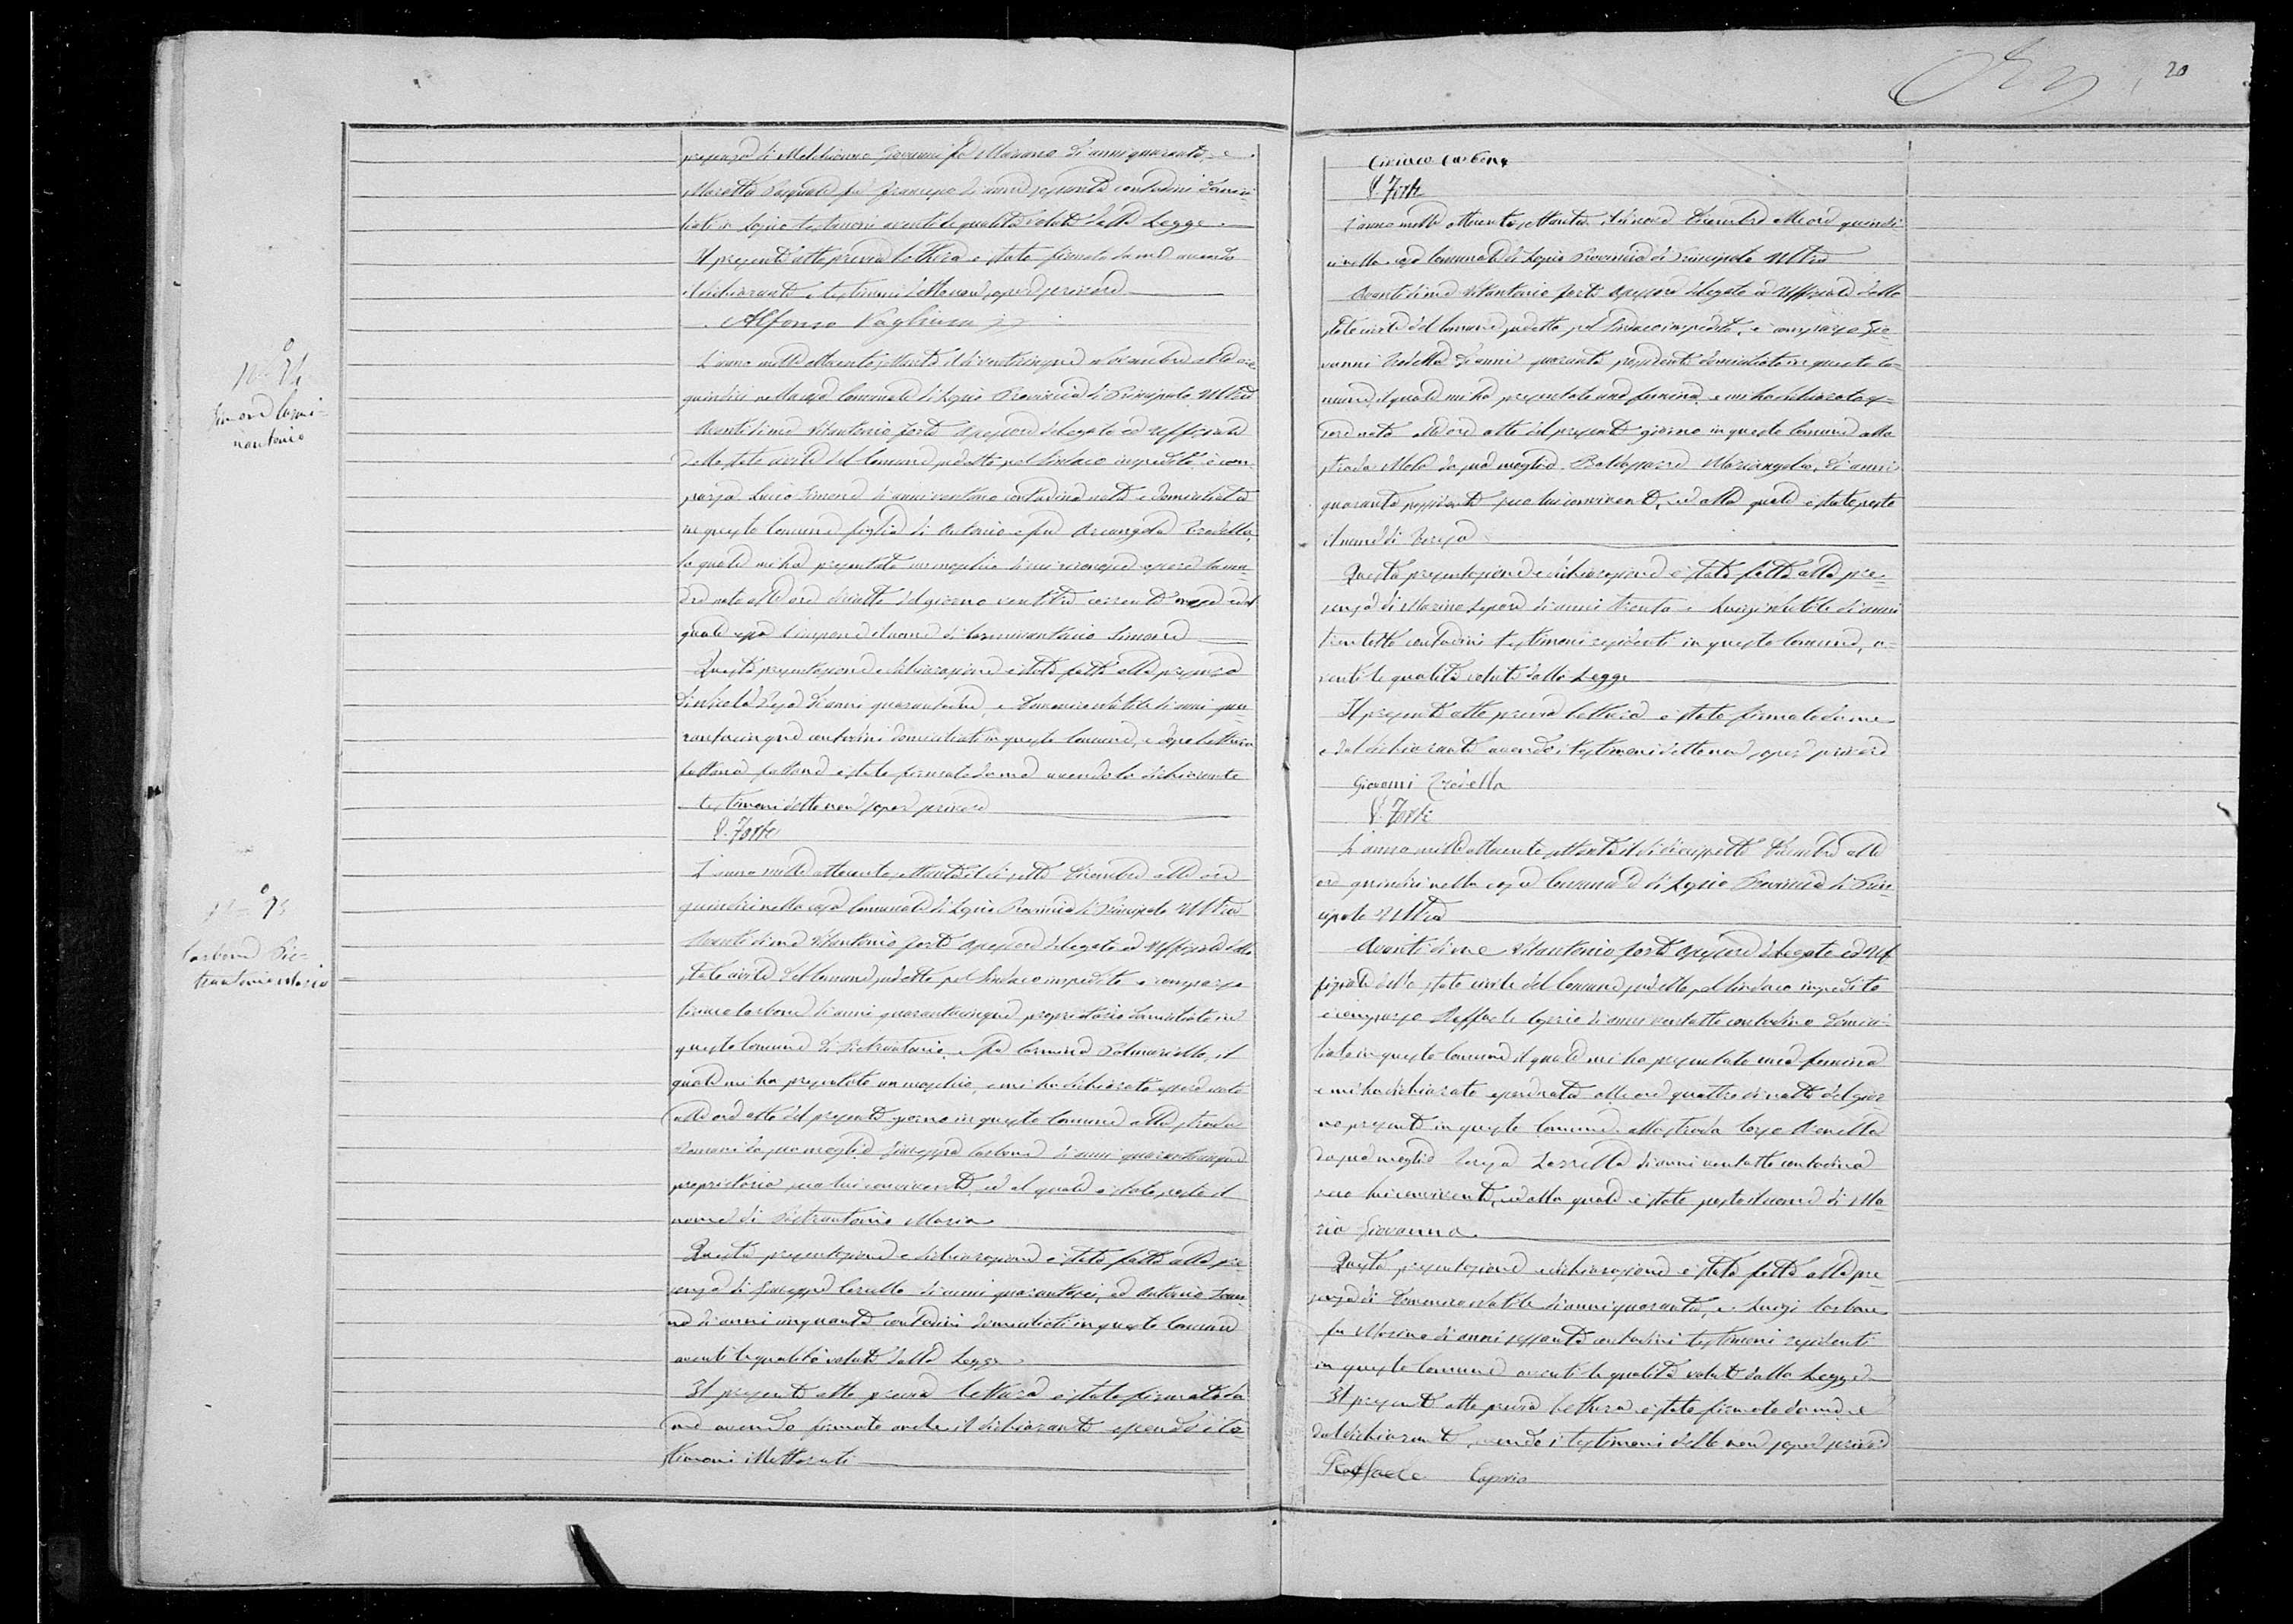 presenza di Melchionno Giovanni fu Mariano di anni quaranta, e
Marotta Pasquale fu Francesco di anni sessanta contadini domici-
liati in Lapio testimoni aventi le qualità volute dalla Legge.
Il presente atto previa lettura è stato firmato da me avendo
il dichiarante e testimoni detto non saper scrivere
Alfonso Vagliuna
N.o 74
Simone Carmi-
nantonio
L'anno mille ottocento settanta il dì venticinque Novembre alle ore
quindici nella casa Comunale di Lapio Provincia di Principato Ultra
Avanti di me Vitantonio Forte Assessore delegato ed Uffiziale
dello stato civile del Comune suddetto pel Sindaco impedito è com-
parsa Lucia Simone di anni ventuno contadina nata e domiciliata
in questo Comune figlia di Antonio e fu Arcangela Trodella,
la quale mi ha presentato un maschio di cui riconosce essere la ma-
dre nato alle ore diciotto del giorno ventitre corrente mese ed al
quale essa impone il nome di Carminantonio Simone
Questa presentazione e dichiarazione è stata fatta alla presenza
di Nicola Pepe di anni quarantadue, e Domenico Natale di anni qua-
rantacinque contadini domiciliati in questo Comune, e dopo lettura
fattane è stato firmato da me avendo la dichiarante
e testimoni detto non saper scrivere
V. Forte
N.o 75
Carbone Pie-
trantonio Maria
L'anno mille ottocento settanta il dì sette Dicembre alle ore
quindici nella casa Comunale di Lapio Provincia di Principato Ultra
Avanti di me Vitantonio Forte Assessore delegato ed Uffiziale dello
stato civile del Comune suddetto pel Sindaco impedito è comparso
Ciriaco Carbone di anni quarantacinque proprietario domiciliato in
questo Comune di Pietrantonio e fu Carmina Palmariello, il
quale mi ha presentato un maschio, e mi ha dichiarato essere nato
alle ore otto del presente giorno in questo Comune alla strada
Romani da sua moglie Giuseppa Carbone di anni quarantacinque
proprietaria seco lui convivente, ed al quale è stato posto il
nome di Pietrantonio Maria
Questa presentazione e dichiarazione è stata fatta alla pre-
senza di Giuseppe Carullo di anni quarantasei, ed Antonio
di anni cinquanta contadini domiciliati in questo Comune
aventi le qualità volute dalla Legge.
Il presente atto previa lettura è stato firmato da
me avendo firmato anche il dichiarante essendo i te-
stimoni illetterati
20
Ciriaco Carbone
V. Forte
L'anno mille ottocento settanta, il dì nove Dicembre alle ore quindi-
ci nella casa Comunale di Lapio Provincia di Principato Ultra
Avanti di me Vitantonio Forte Assessore delegato ed Uffiziale dello
stato civile del Comune suddetto pel Sindaco impedito, è comparso Gio-
vanni Trodella di anni quaranta possidente domiciliato in questo Co-
mune, il quale mi ha presentato una femina, e mi ha dichiarato es-
sere nata alle ore otto del presente giorno in questo Comune alla
strada Mola da sua moglie Baldassarre Mariangela, di anni
quaranta possidente seco lui convivente, ed alla quale è stato posto
il nome di Teresa
Questa presentazione e dichiarazione è stata fatta alla pre-
senza di Marino Lepore di anni trenta e Luigi Natale di anni
trentotto contadini testimoni residenti in questo Comune, a-
venti le qualità volute dalla Legge
Il presente atto previa lettura è stato firmato da me
e dal dichiarante avendo i testimoni detto non saper scrivere
Giovanni Trodella
V. Forte
L'anno mille ottocento settanta il dì diciassette Dicembre alle
ore quindici nella casa Comunale di Lapio Provincia di Prin-
cipato Ultra
Avanti di me Vitantonio Forte Assessore delegato ed Uf-
fiziale dello stato civile del Comune suddetto pel Sindaco impedito
è comparso Raffaele Caprio di anni ventotto contadino domici-
liato in questo Comune il quale mi ha presentato una femina
e mi ha dichiarato essere nata alle ore quattro di notte del gior-
no presente in questo Comune alla strada Corso Venella
da sua moglie Teresa Zarrella di anni ventotto contadina
seco lui convivente, ed alla quale è stato posto il nome di Ma-
ria Giovanna
Questa presentazione e dichiarazione è stata fatta alla pre-
senza di Domenico Natale di anni quaranta, e Luigi Carbone
fu Marino di anni sessanta contadini testimoni residenti
in questo Comune aventi le qualità volute dalla Legge
Il presente atto previa lettura è stato firmato da me e
dal dichiarante, avendo i testimoni detto non saper scrivere
Raffaele Caprio